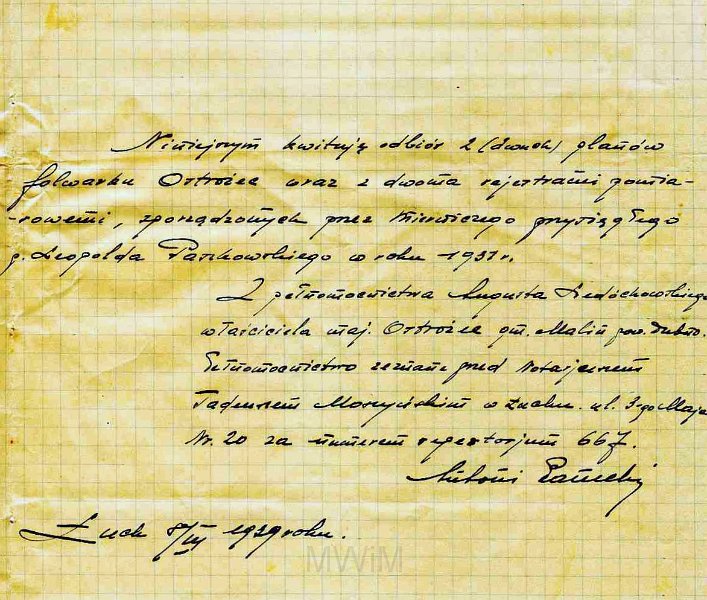 Niniejszym kwituję odbiór 2 (dwuch) planów
folwarku Ostrożec wraz z dwoma rejestrami pomia-
-rowemi, sporządzonych przez mierniczego przysięgłego
p. Leopolda Paszkowskiego w roku 1931 r.
Z pełnomocnictwa Augusta Ledóchowskiego
właściciela maj. Ostrożec gm. Malin pow. Dubno.
Pełnomocnictwo zeznane przed Notarjuszem
Tadeuszem Moszyńskim w Łucku. ul. 3-go Maja
Nr. 20 za numerem repertorjum 667.
Antoni
Łuck 1939 roku.
MWiM